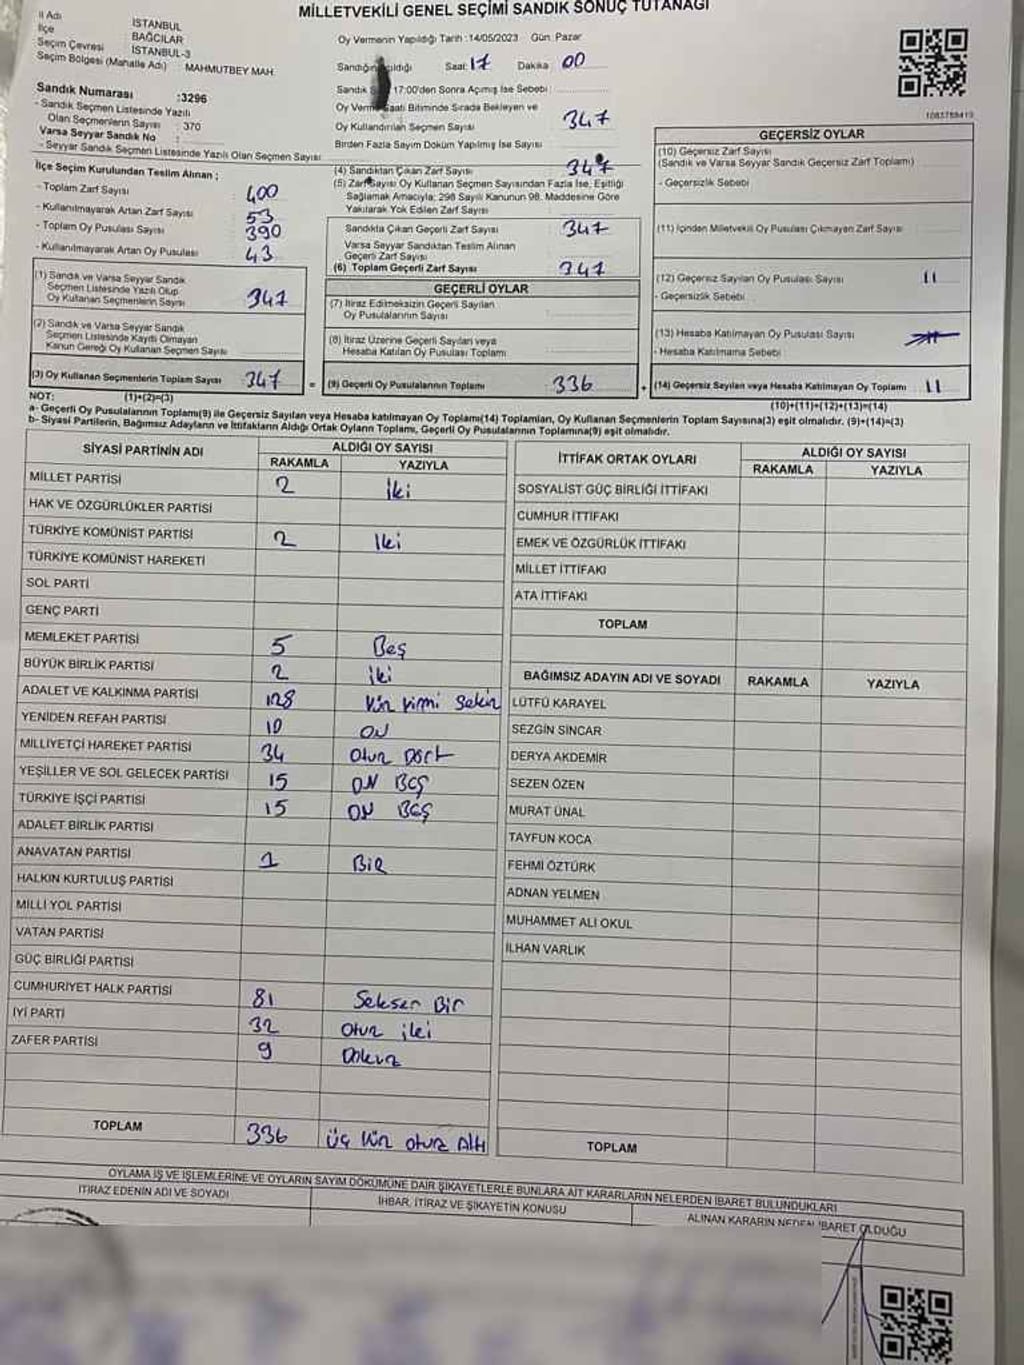 MİLLETVEKİLİ GENEL SEÇİMİ SANDIK SONUÇ TUTANAĞI
İl Adı İSTANBUL
İlçe BAĞCILAR
Seçim Çevresi İSTANBUL-3
Seçim Bölgesi (Mahalle Adı) MAHMUTBEY MAH.
Oy Vermenin Yapıldığı Tarih :14/05/2023 Gün: Pazar
Saat: 17 Dakika : 00
17:00'den Sonra Açımış İse Sebebi :
Bitiminde Sırada Bekleyen ve
Oy Kullandırılan Seçmen Sayısı 347
Birden Fazla Sayım Doküm Yapılmış İse Sayısı
1083758413
Sandık Numarası :3296
- Sandık Seçmen Listesinde Yazılı
Olan Seçmenlerin Sayısı : 370
Varsa Seyyar Sandık No :
- Seyyar Sandık Seçmen Listesinde Yazılı Olan Seçmen Sayısı :
İlçe Seçim Kurulundan Teslim Alınan ;
- Toplam Zarf Sayısı 400
- Kullanılmayarak Artan Zarf Sayısı 53
- Toplam Oy Pusulası Sayısı 390
- Kullanılmayarak Artan Oy Pusulası 43
(1) Sandık ve Varsa Seyyar Sandık
Seçmen Listesinde Yazılı Olup
Oy Kullanan Seçmenlerin Sayısı 347
(2) Sandık ve Varsa Seyyar Sandık
Seçmen Listesinde Kaydı Olmayan
Kanun Gereği Oy Kullanan Seçmen Sayısı
(3) Oy Kullanan Seçmenlerin Toplam Sayısı 347
(1)+(2)=(3)
(4) Sandıktan Çıkan Zarf Sayısı 347
(5) Zarf Sayısı Oy Kullanan Seçmen Sayısından Fazla İse, Eşitliği
Sağlamak Amacıyla; 298 Sayılı Kanunun 98. Maddesine Göre
Yakılarak Yok Edilen Zarf Sayısı
Sandıkta Çıkan Geçerli Zarf Sayısı 347
Varsa Seyyar Sandıktan Teslim Alınan
Geçerli Zarf Sayısı
(6) Toplam Geçerli Zarf Sayısı 347
GEÇERLİ OYLAR
(7) İtiraz Edilmeksizin Geçerli Sayılan
Oy Pusulalarının Sayısı
(8) İtiraz Üzerine Geçerli Sayılan veya
Hesaba Katılan Oy Pusulası Toplamı
= (9) Geçerli Oy Pusulalarının Toplamı 336
GEÇERSİZ OYLAR
(10) Geçersiz Zarf Sayısı
(Sandık ve Varsa Seyyar Sandık Geçersiz Zarf Toplamı)
- Geçersizlik Sebebi
(11) İçinden Milletvekili Oy Pusulası Çıkmayan Zarf Sayısı
(12) Geçersiz Sayılan Oy Pusulası Sayısı 11
- Geçersizlik Sebebi
(13) Hesaba Katılmayan Oy Pusulası Sayısı
- Hesaba Katılmama Sebebi
+ (14) Geçersiz Sayılan veya Hesaba Katılmayan Oy Toplamı 11
(10)+(11)+(12)+(13)=(14)
NOT:
a- Geçerli Oy Pusulalarının Toplamı(9) ile Geçersiz Sayılan veya Hesaba katılmayan Oy Toplamı(14) Toplamları, Oy Kullanan Seçmenlerin Toplam Sayısına(3) eşit olmalıdır. (9)+(14)=(3)
b- Siyasi Partilerin, Bağımsız Adayların ve İttifakların Aldığı Ortak Oyların Toplamı, Geçerli Oy Pusulalarının Toplamına(9) eşit olmalıdır.
SİYASİ PARTİNİN ADI ALDIĞI OY SAYISI
RAKAMLA YAZIYLA
MİLLET PARTİSİ 2 İki
HAK VE ÖZGÜRLÜKLER PARTİSİ
TÜRKİYE KOMÜNİST PARTİSİ 2 İki
TÜRKİYE KOMÜNİST HAREKETİ
SOL PARTİ
GENÇ PARTİ
MEMLEKET PARTİSİ 5 Beş
BÜYÜK BİRLİK PARTİSİ 2 İki
ADALET VE KALKINMA PARTİSİ 128
YENİDEN REFAH PARTİSİ 10 ON
MİLLİYETÇİ HAREKET PARTİSİ 34 Otuz Dört
YEŞİLLER VE SOL GELECEK PARTİSİ 15 ON BEŞ
TÜRKİYE İŞÇİ PARTİSİ 15 ON BEŞ
ADALET BİRLİK PARTİSİ
ANAVATAN PARTİSİ 1 BİR
HALKIN KURTULUŞ PARTİSİ
MİLLİ YOL PARTİSİ
VATAN PARTİSİ
GÜÇ BİRLİĞİ PARTİSİ
CUMHURİYET HALK PARTİSİ 81 Seksen Bir
İYİ PARTİ 32 Otuz iki
ZAFER PARTİSİ 9 Dokuz
TOPLAM 336 Üç Yüz Otuz Altı
İTTİFAK ORTAK OYLARI ALDIĞI OY SAYISI
RAKAMLA YAZIYLA
SOSYALİST GÜÇ BİRLİĞİ İTTİFAKI
CUMHUR İTTİFAKI
EMEK VE ÖZGÜRLÜK İTTİFAKI
MİLLET İTTİFAKI
ATA İTTİFAKI
TOPLAM
BAĞIMSIZ ADAYIN ADI VE SOYADI RAKAMLA YAZIYLA
LÜTFÜ KARAYEL
SEZGİN SİNCAR
DERYA AKDEMİR
SEZEN ÖZEN
MURAT ÜNAL
TAYFUN KOCA
FEHMİ ÖZTÜRK
ADNAN YELMEN
MUHAMMET ALİ OKUL
İLHAN VARLIK
TOPLAM
OYLAMA İŞ VE İŞLEMLERİNE VE OYLARIN SAYIM DÖKÜMÜNE DAİR ŞİKAYETLERLE BUNLARA AİT KARARLARIN NELERDEN İBARET BULUNDUKLARI
İTİRAZ EDENİN ADI VE SOYADI
İHBAR, İTİRAZ VE ŞİKAYETİN KONUSU
ALINAN KARARIN NEDEN İBARET OLDUĞU